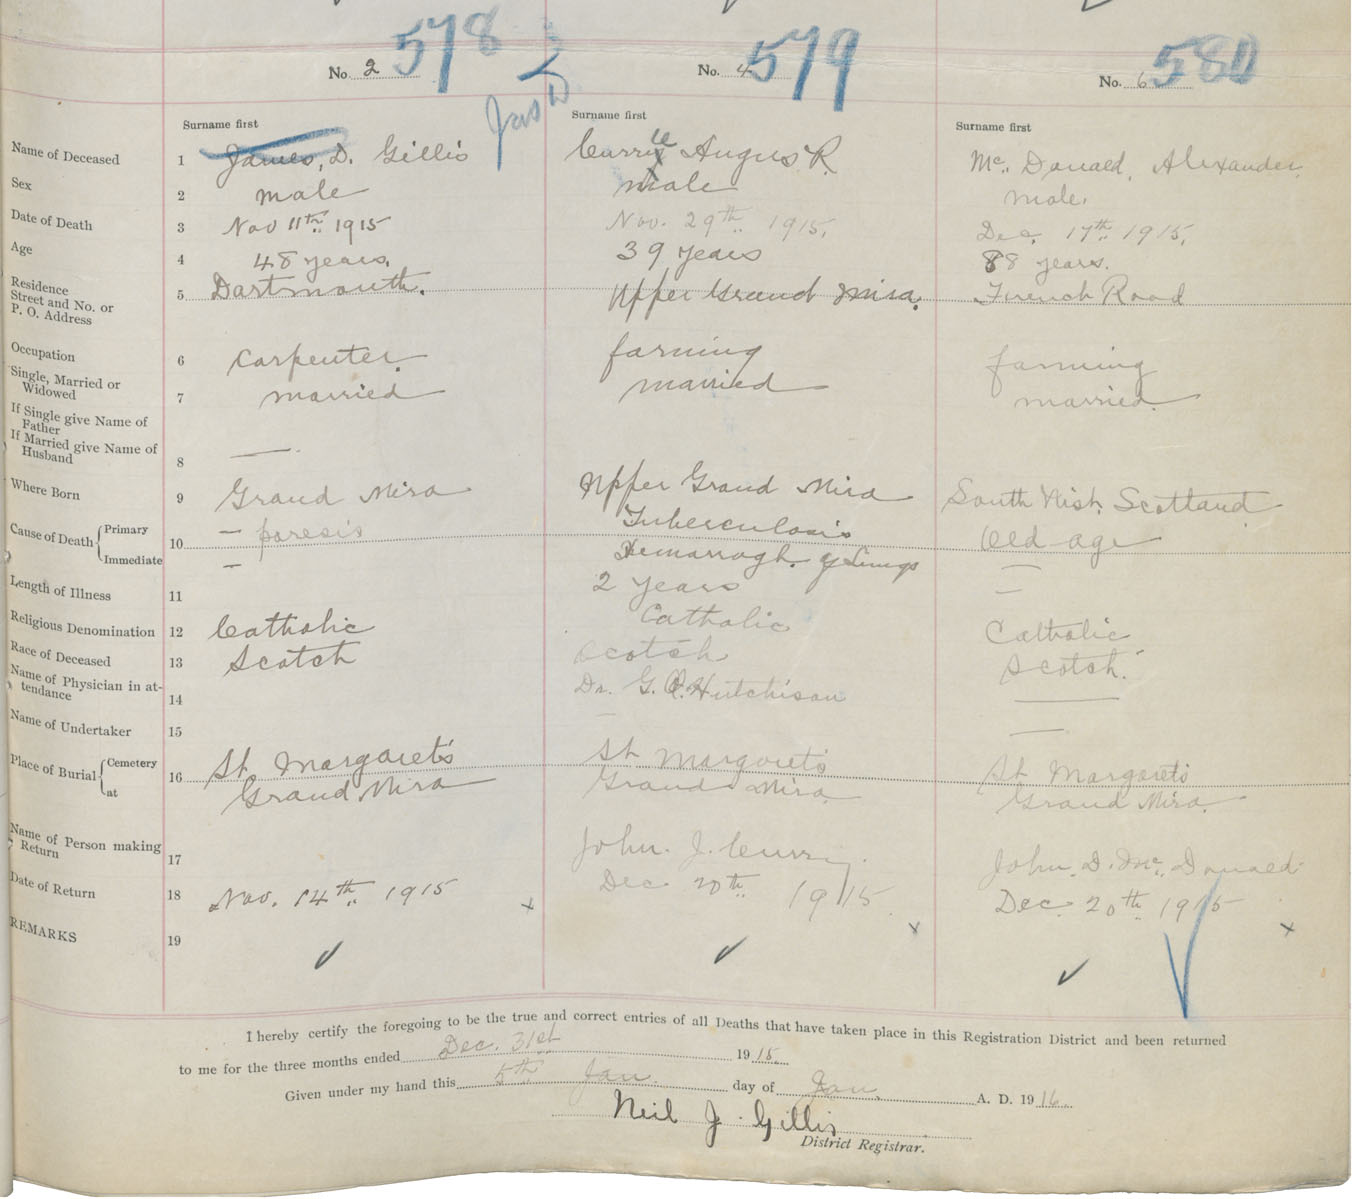 No. 2 578
No. 4 579
No. 6 580
Jas D
Surname first
Surname first
Surname first
Name of Deceased 1 James, D. Gillis Currie Angus R. Mc. Donald, Alexander
Sex 2 male male male.
Date of Death 3 Nov 11th 1915 Nov. 29th 1915. Dec. 17th 1915.
Age 4 48 years. 39 years 88 years.
Residence
Street and No. or 5 Dartmouth. Upper Grand Mira. French Road
P. O. Address
Occupation 6 Carpenter. farming farming
Single, Married or
Widowed 7 married married married.
If Single give Name of
Father
If Married give Name of
Husband 8 —.
Where Born 9 Grand Mira Upper Grand Mira South Uist, Scotland
Cause of Death Primary — paresis Tuberculosis Old age
10
Immediate — Hemarragh. of Lungs —
Length of Illness 11 2 years —
Religious Denomination 12 Catholic Catholic Catholic
Race of Deceased 13 Scotch Scotch Scotch.
Name of Physician in at-
tendance 14 Dr. G. Hutchison —
Name of Undertaker 15 — —
Place of Burial Cemetery 16 St Margaret's St Margaret's St Margaret's
at Grand Mira Grand Mira. Grand Mira.
Name of Person making
Return 17 John. J. Currie. John. D. Mc. Donald
Date of Return 18 Nov. 14th 1915 Dec 20th 1915. Dec. 20th 1915
REMARKS 19
I hereby certify the foregoing to be the true and correct entries of all Deaths that have taken place in this Registration District and been returned
to me for the three months ended Dec. 31st 1915.
Given under my hand this 5th Jan. day of Jan. A. D. 1916.
Neil J. Gillis
District Registrar.